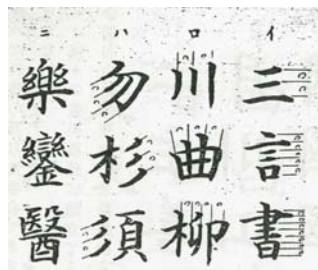 イ 三 言 書
ロ 川 曲 柳
ハ 勿 杉 須
ニ 樂 鑾 醫